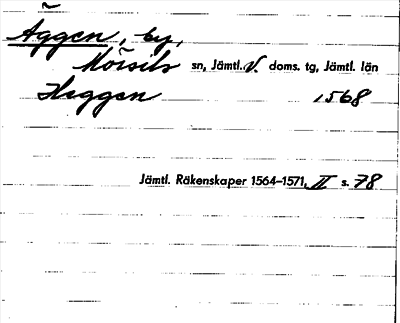 Äggen, by,
Mörsils sn, Jämtl. V. doms. tg, Jämtl. län
Heggen 1568
Jämtl. Räkenskaper 1564–1571, II s. 78